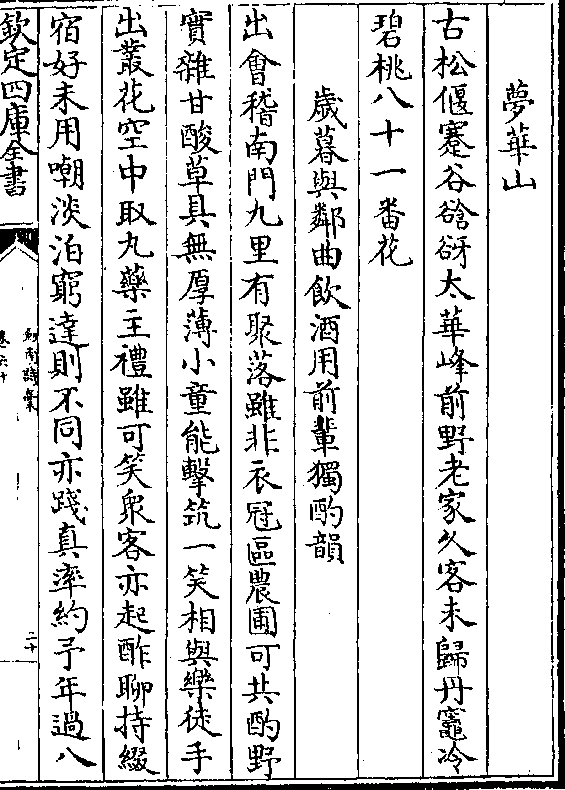 夢華山
古松偃蹇谷谽谺太華峰前野老家久客未歸丹竈冷
碧桃八十一番花
歲暮與鄰曲飲酒用前輩獨酌韻
出會稽南門九里有聚落雖非衣冠區農圃可共酌野
實雜甘酸草具無厚薄小童能擊筑一笑相與樂徒手
出叢花空中取丸藥主禮雖可笑衆客亦起酢聊持綴
宿好未用嘲淡泊窮達則不同亦踐真率約予年過八
欽定四庫全書
劍南詩槀
卷六十
二十